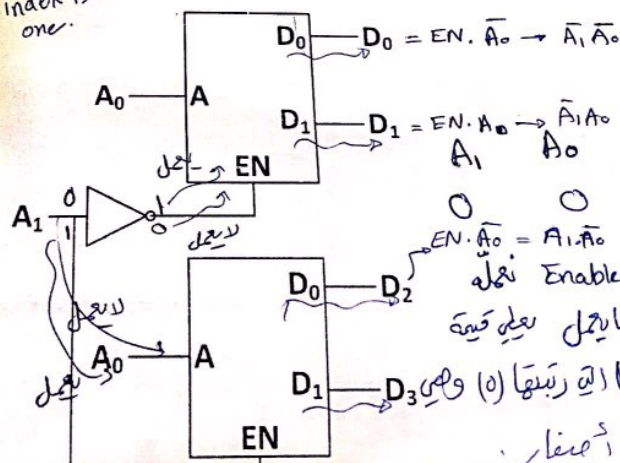 index is
one.
D₀ D₀ = EN. A̅₀ → A̅₁ A̅₀
A₀ A
D₁ D₁ = EN. A₀ → A̅₁A₀
A₁ A₀
يعمل
EN
A₁ 0 1
1 0
لا يعمل
0 0
EN. A̅₀ = A₁.A̅₀
D₀ D₂
Enable
لا يعمل
A₀ A
يعمل
يعطي قيمة
D₁ D₃
رتبتها (0) وهي
EN
أصفار.